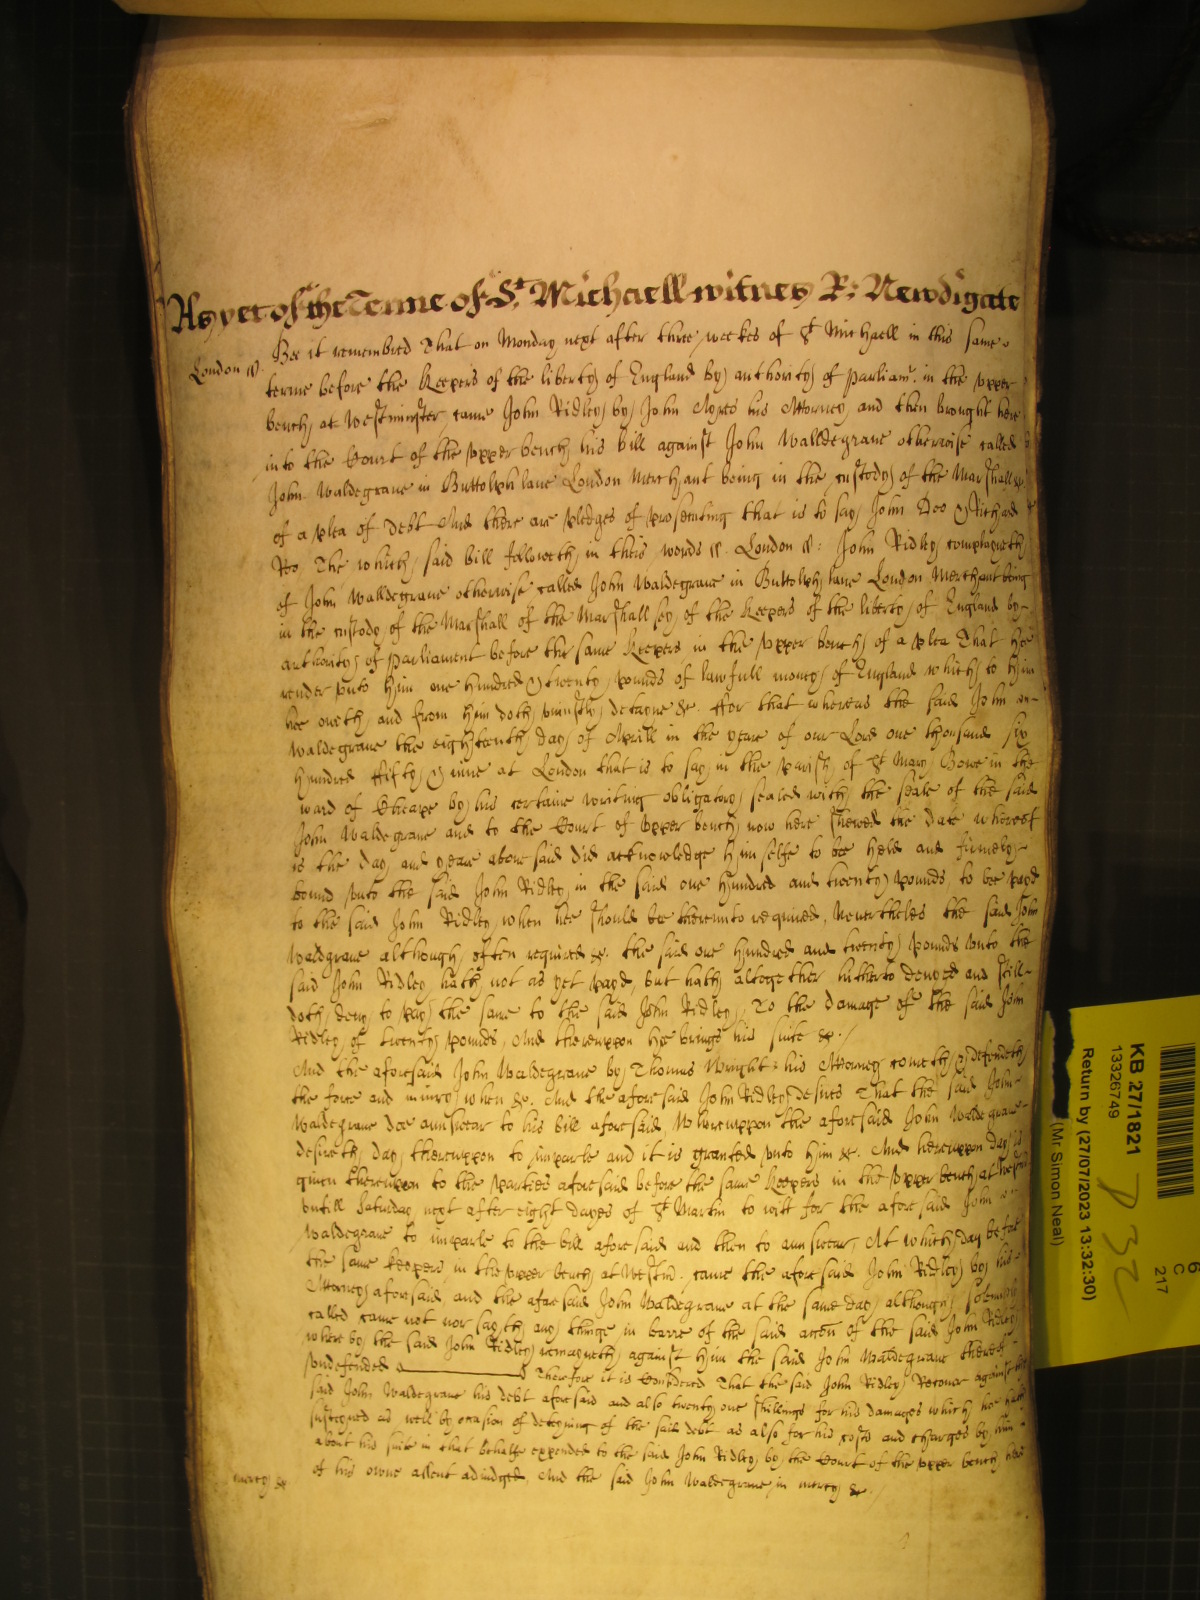 As yet of the Terme of St. Michaell witnes R: Newdigate
London ss. Bee it remembred That on Monday next after three weekes of St Michaell in this same
terme before the Keepers of the liberty of England by authority of Parliamt. in the upper
bench at Westminster came John Ridley by John Ayres his Attorney and then brought here
into the Court of the upper bench his bill against John Walldegrave otherwise called
John Waldegrave in Buttolph lane London Merchant being in the custody of the Marshall &c.
of a plea of debt And there are pledges of prosecuting that is to say John Doo & Richard
Roo The which said bill followeth in theis words ss. London ss: John Ridley complayneth
of John Walldegrave otherwise called John Waldegrave in Buttolph lane London Merchant being
in the custody of the Marshall of the Marshallsey of the Keepers of the liberty of England by
authority of Parliament before the same Keepers in the upper bench of a plea That hee
render unto him one hundred & twenty pounds of lawfull money of England which to him
hee oweth and from him doth uniustly detayne &c. ffor that whereas the said John
Waldegrave the eighteenth day of Aprill in the yeare of our Lord one thousand six
hundred fifty & nine at London that is to say in the parish of St Mary Bowe in the
ward of Cheape by his certaine writing obligatory sealed with the seale of the said
John Waldegrave and to the Court of upper bench now here shewed the date whereof
is the day and yeare abovesaid did acknowledge himselfe to bee held and firmely
bound unto the said John Ridley in the said one hundred and twenty pounds to bee payd
to the said John Ridley when hee should bee thereunto required, Neverthelesse the said John
Waldgrave although often required &c. the said one hundred and twenty pounds unto the
said John Ridley hath not as yet payd, but hath altogether hitherto denyed and still
doth deny to pay the same to the said John Ridley, To the damage of the said John
Ridley of twenty pounds, And thereuppon hee brings his suite &c.
And the aforesaid John Waldegrave by Thomas Wright his Attorney cometh & defendeth
the force and iniury when &c. And the aforesaid John Ridley desires That the said John
Waldegrave doe aunswear to his bill aforesaid, Whereuppon the aforesaid John Waldegrave
desireth day thereuppon to imparle and it is graunted unto him &c. And hereuppon day is
given thereuppon to the parties aforesaid before the same Keepers in the upper bench at
untill Saturday next after eight dayes of St Martin to witt for the aforesaid John
Waldegrave to imparle to the bill aforesaid and then to aunswear, At which day before
the same Keepers in the upper bench at Westm. came the aforesaid John Ridley by his
Attorney aforesaid, and the aforesaid John Waldegrave at the same day although solemnly
called came not nor sayth any thinge in barre of the said accon of the said John Ridley
whereby the said John Ridley remayneth against him the said John Waldegrave thereof
undefended Therefore it is Considered That the said John Ridley Recover against the
said John Waldegrave his debt aforesaid and also twenty one shillings for his damages which hee hath
susteyned as well by occasion of deteyning of the said debt as also for his costs and charges by him
about his suite in that behalfe expended to the said John Ridley by the Court of the upper bench here
mercy &c of his owne assent adiudged, And the said John Waldegrave in mercy &c.
KB 27/1821
13326749
Return by (27/07/2023 13:32:30)
(Mr Simon Neal)
C
217